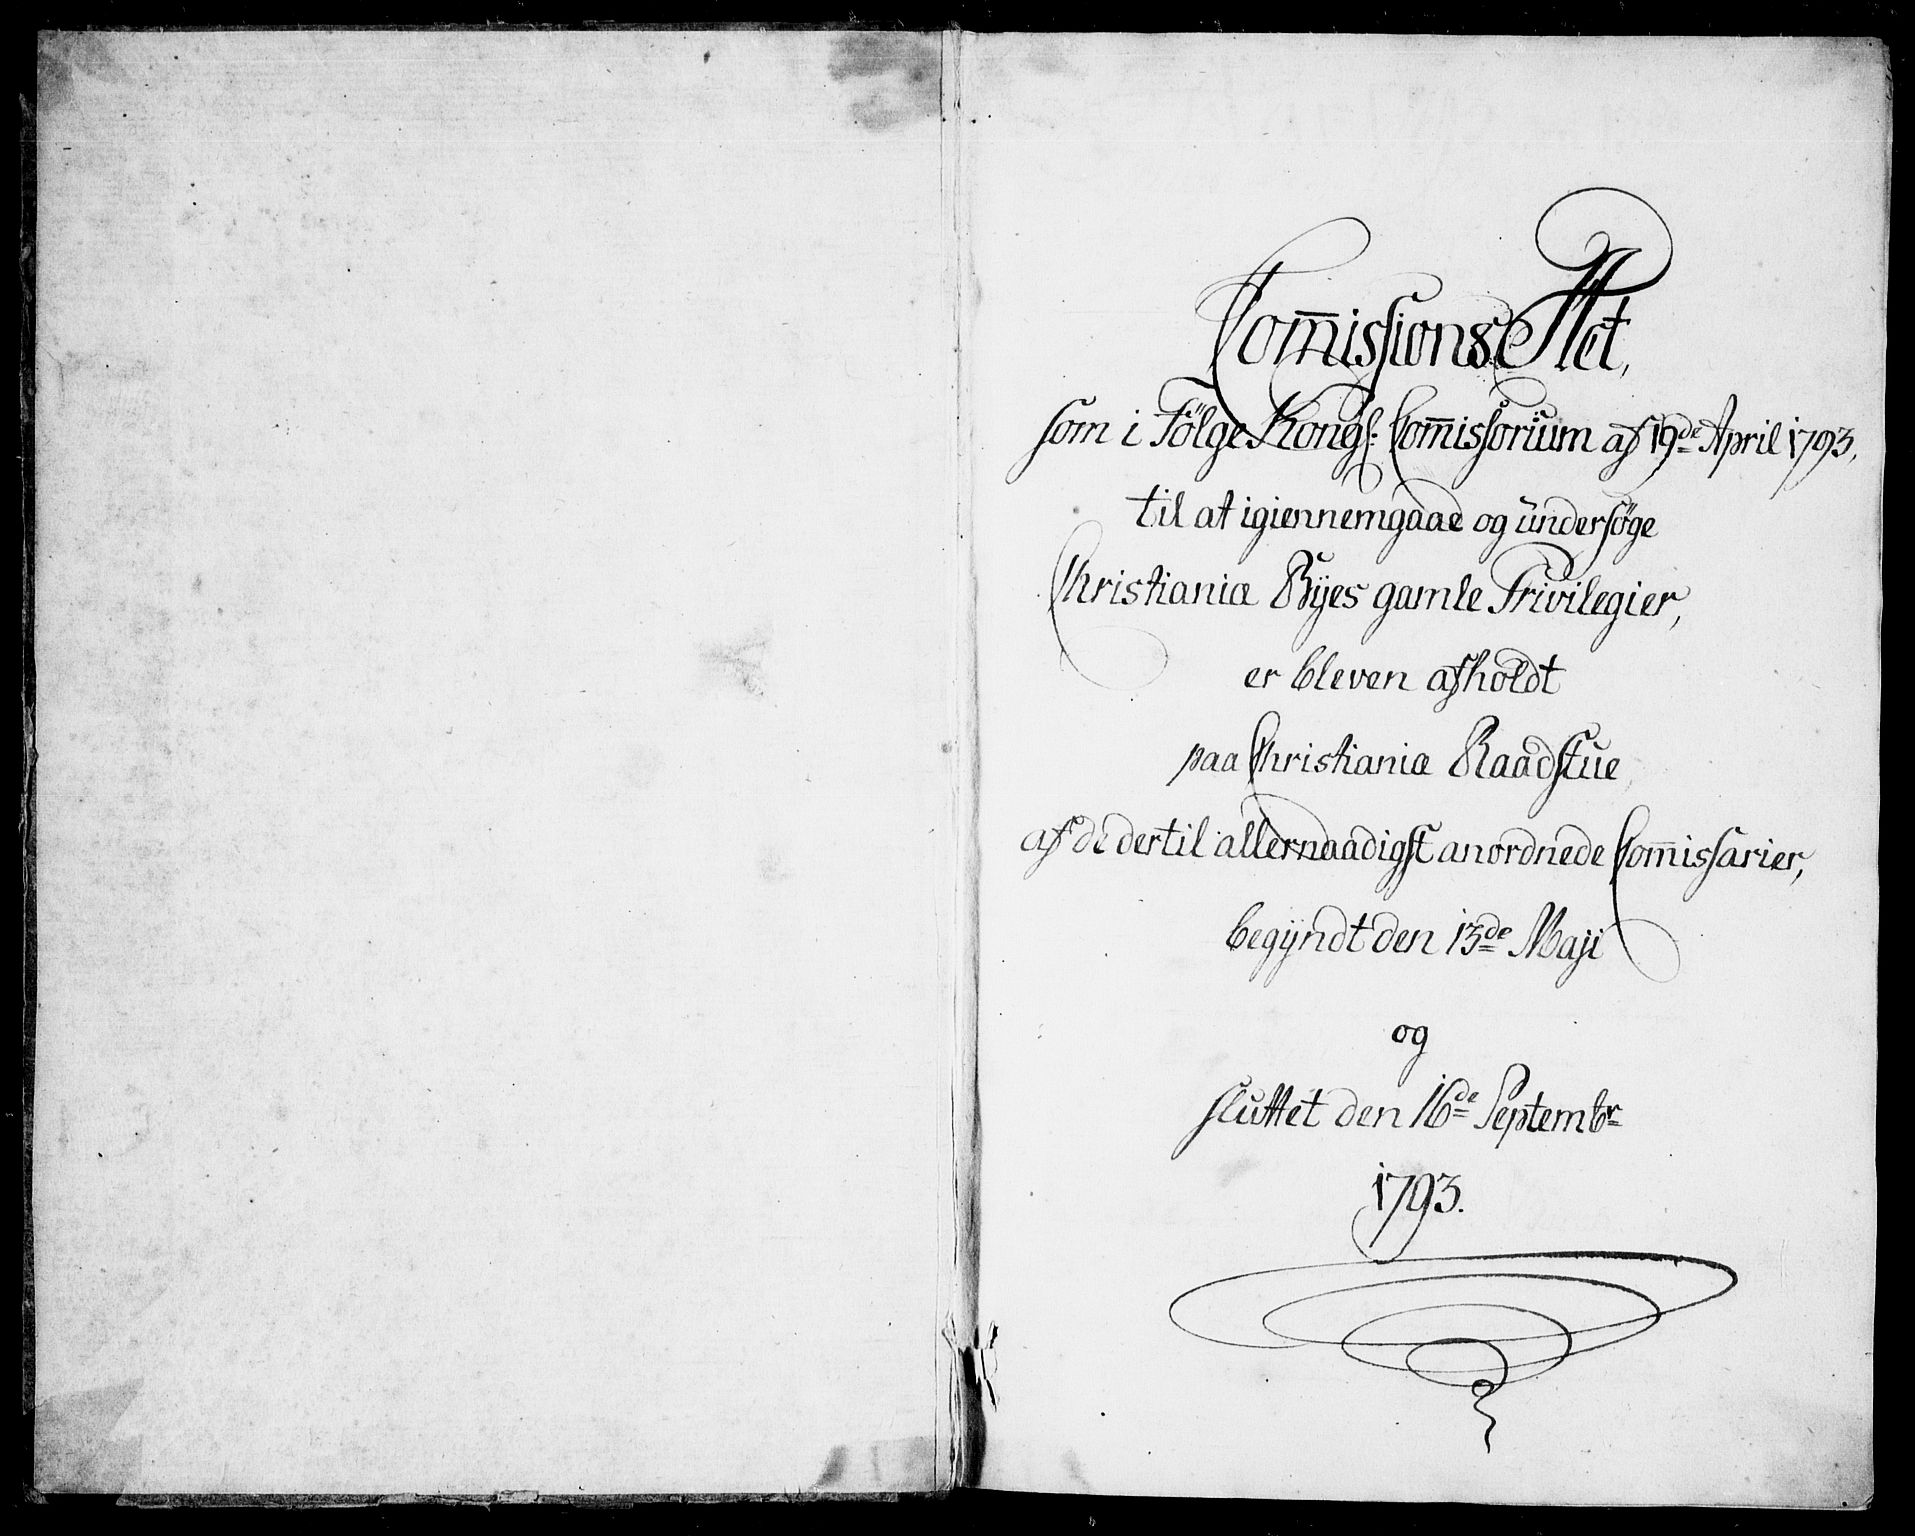 Com̅issions Act,
som i Fölge Kongl: Com̅issorium af 19de April 1793,
til at igiennemgaae og undersøge
Christianiæ Byes gamle Privilegier,
er bleven afholdt
paa Christianiæ Raadstue
af de dertil allernaadigst anordnede Com̅issarier,
begyndt den 13de Maji
og
sluttet den 16de Septembr
1793.